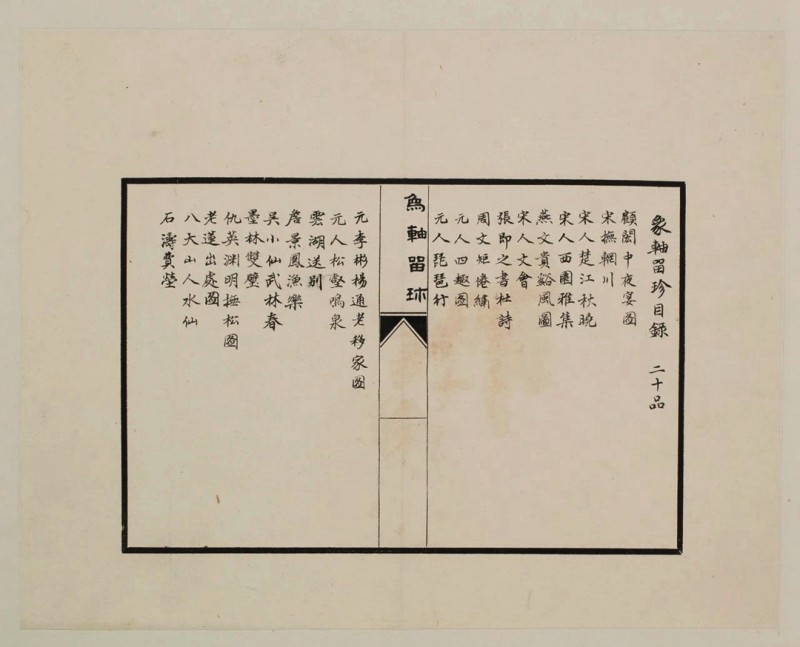 象軸留珍目錄　二十品
顧閎中夜宴圖
宋撫輞川
宋人楚江秋曉
宋人西園雅集
燕文貴谿風圖
宋人文會
張即之書杜詩
周文矩倦繡
元人四趣圖
元人琵琶行
象軸留珎
元李彬楊通老移家圖
元人松壑鳴泉
雲湖送别
詹景鳳漁樂
吳小仙武林春
墨林雙璧
仇英渊明撫松圖
老蓮出處圖
八大山人水仙
石濤